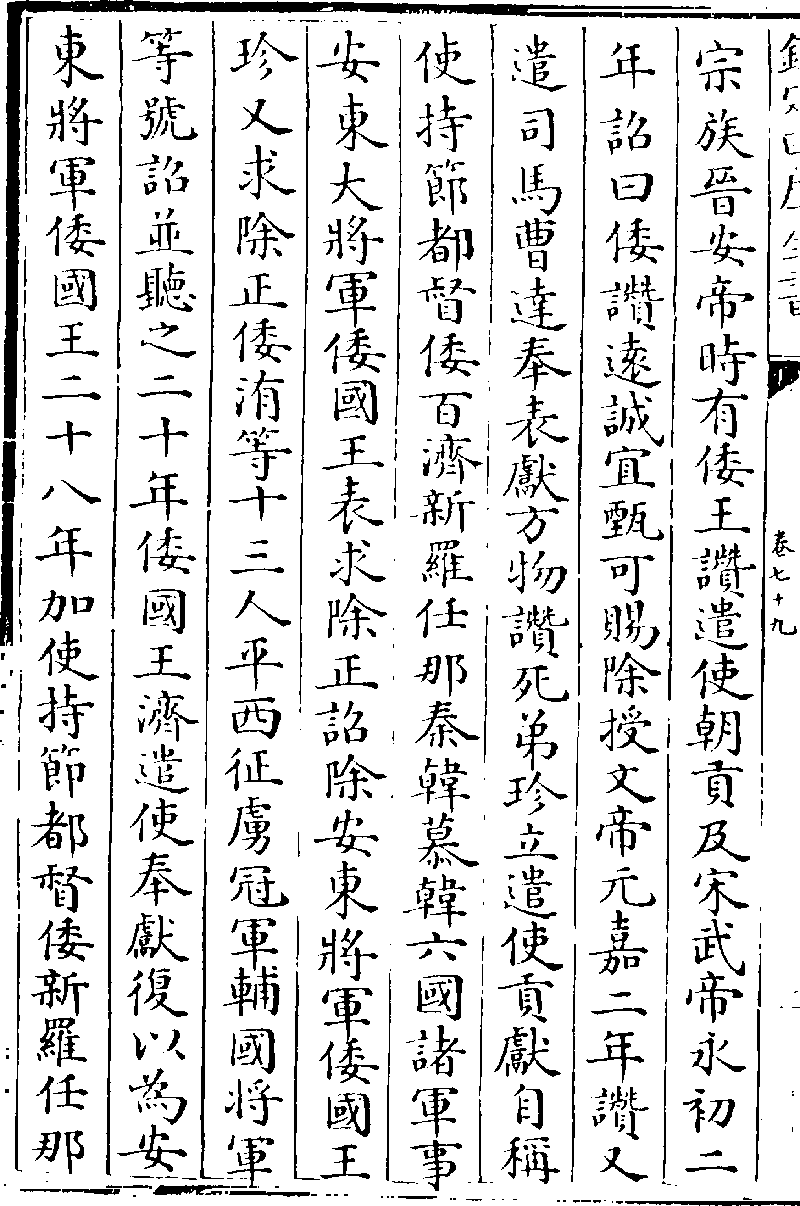 欽定四庫全書
卷七十九
宗族晉安帝時有倭王讚遣使朝貢及宋武帝永初二
年詔曰倭讚逺誠宜甄可賜除授文帝元嘉二年讚又
遣司馬曹達奉表獻方物讚死弟珍立遣使貢獻自稱
使持節都督倭百濟新羅任那秦韓慕韓六國諸軍事
安東大將軍倭國王表求除正詔除安東將軍倭國王
珍又求除正倭洧等十三人平西征虜冠軍輔國將軍
等號詔並聽之二十年倭國王濟遣使奉獻復以為安
東將軍倭國王二十八年加使持節都督倭新羅任那